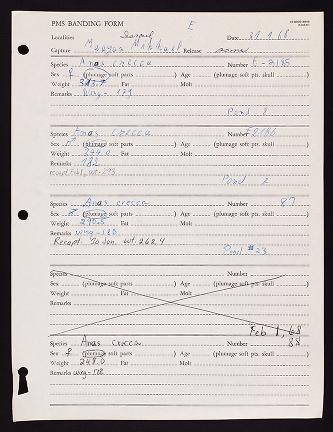 PMS BANDING FORM
E
Localities Date 31.1.68
Capture Release same
Species Anas crecca Number E-2185
Sex ♀ (plumage soft parts ) Age (plumage soft pts. skull )
Weight 313.7 Fat Molt
Remarks Wing - 179
Pond
Species Anas crecca Number E2186
Sex ♂ (plumage soft parts ) Age (plumage soft pts. skull )
Weight 344.0 Fat Molt
Remarks 182
Pond 2
Species Anas crecca Number 87
Sex ♂ (plumage soft parts ) Age (plumage soft pts. skull )
Weight 295.5 Fat Molt
Remarks wing - 180
Recapt. 30 Jan. wt. 262.4
Pond #23
Species Number
Sex (plumage soft parts ) Age (plumage soft pts. skull )
Weight Fat Molt
Remarks
Feb 1, 68
Species Anas crecca Number 88
Sex ♀ (plumage soft parts ) Age (plumage soft pts. skull )
Weight 248.0 Fat Molt
Remarks wing - 178